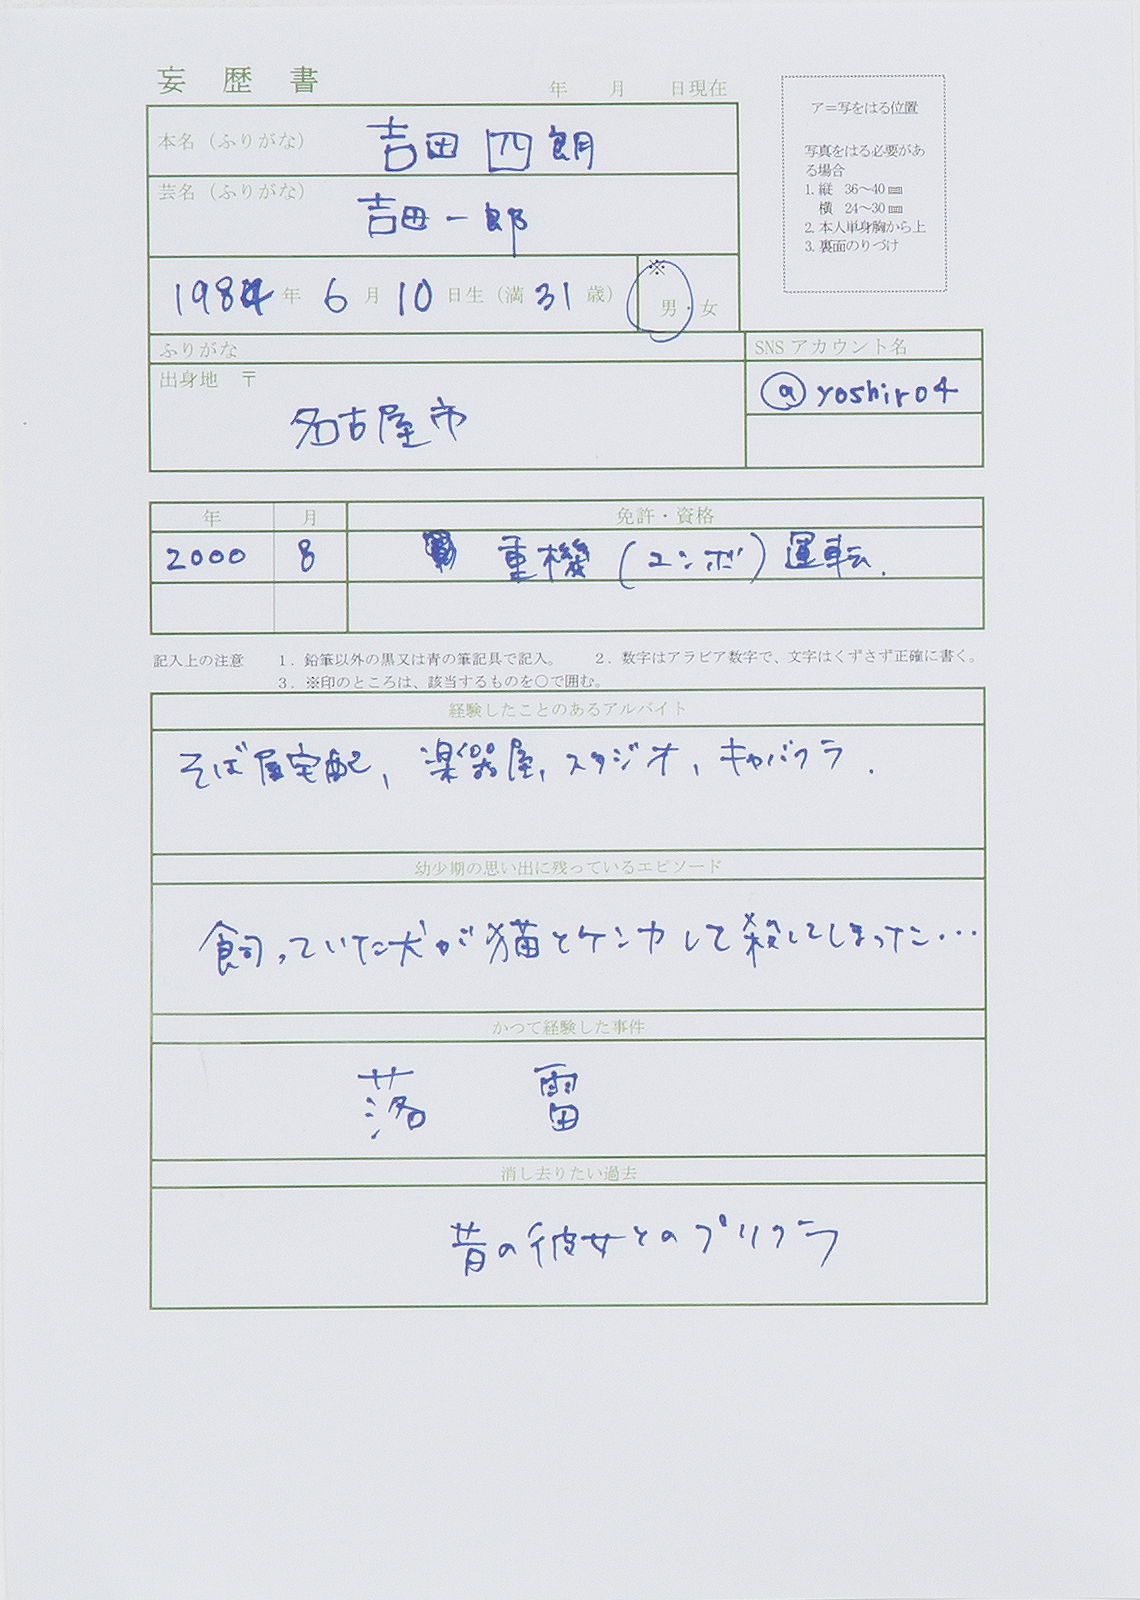 妄歴書
年 月 日現在
ア＝写をはる位置
写真をはる必要があ
る場合
1. 縦 36〜40㎜
横 24〜30㎜
2. 本人単身胸から上
3. 裏面のりづけ
本名（ふりがな） 吉田 四朗
芸名（ふりがな） 吉田一郎
1984年 6月 10日生（満31歳） ※ 男・女
ふりがな
出身地 〒
名古屋市
SNSアカウント名
@yoshiro4
年 月 免許・資格
2000 8 重機（ユンボ）運転.
記入上の注意 1．鉛筆以外の黒又は青の筆記具で記入。 2．数字はアラビア数字で、文字はくずさず正確に書く。
3．※印のところは、該当するものを○で囲む。
経験したことのあるアルバイト
そば屋宅配, 楽器屋, スタジオ, キャバクラ.
幼少期の思い出に残っているエピソード
飼っていた犬が猫とケンカして殺してしまった…
かつて経験した事件
落 雷
消し去りたい過去
昔の彼女とのプリクラ